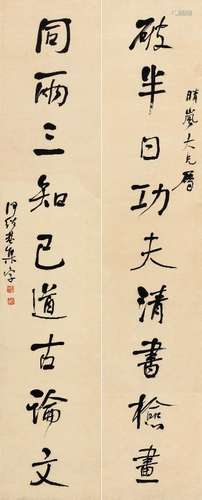 晴嵐大兄屬
破半日功夫清書檢畫
同兩三知己道古論文
何紹基集字